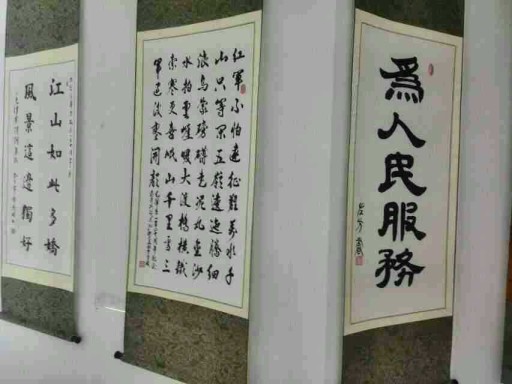 為人民服務
紅軍不怕遠征難萬水千
山只等閑五嶺逶迤騰細
浪烏蒙磅礴走泥丸金沙
水拍雲崖暖大渡橋橫鐵
索寒更喜岷山千里雪三
軍過後盡開顏
江山如此多嬌
風景這邊獨好